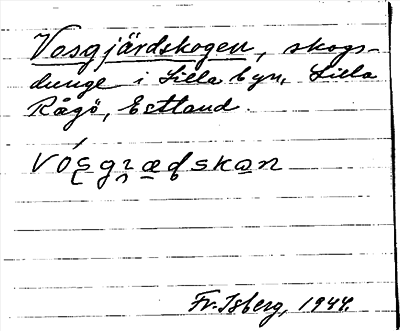 Vosgjärdskogen, skogs-
dunge i Lilla byn, Lilla
Rågö, Estland.
vósgrædskan
Fr. Isberg, 1944.